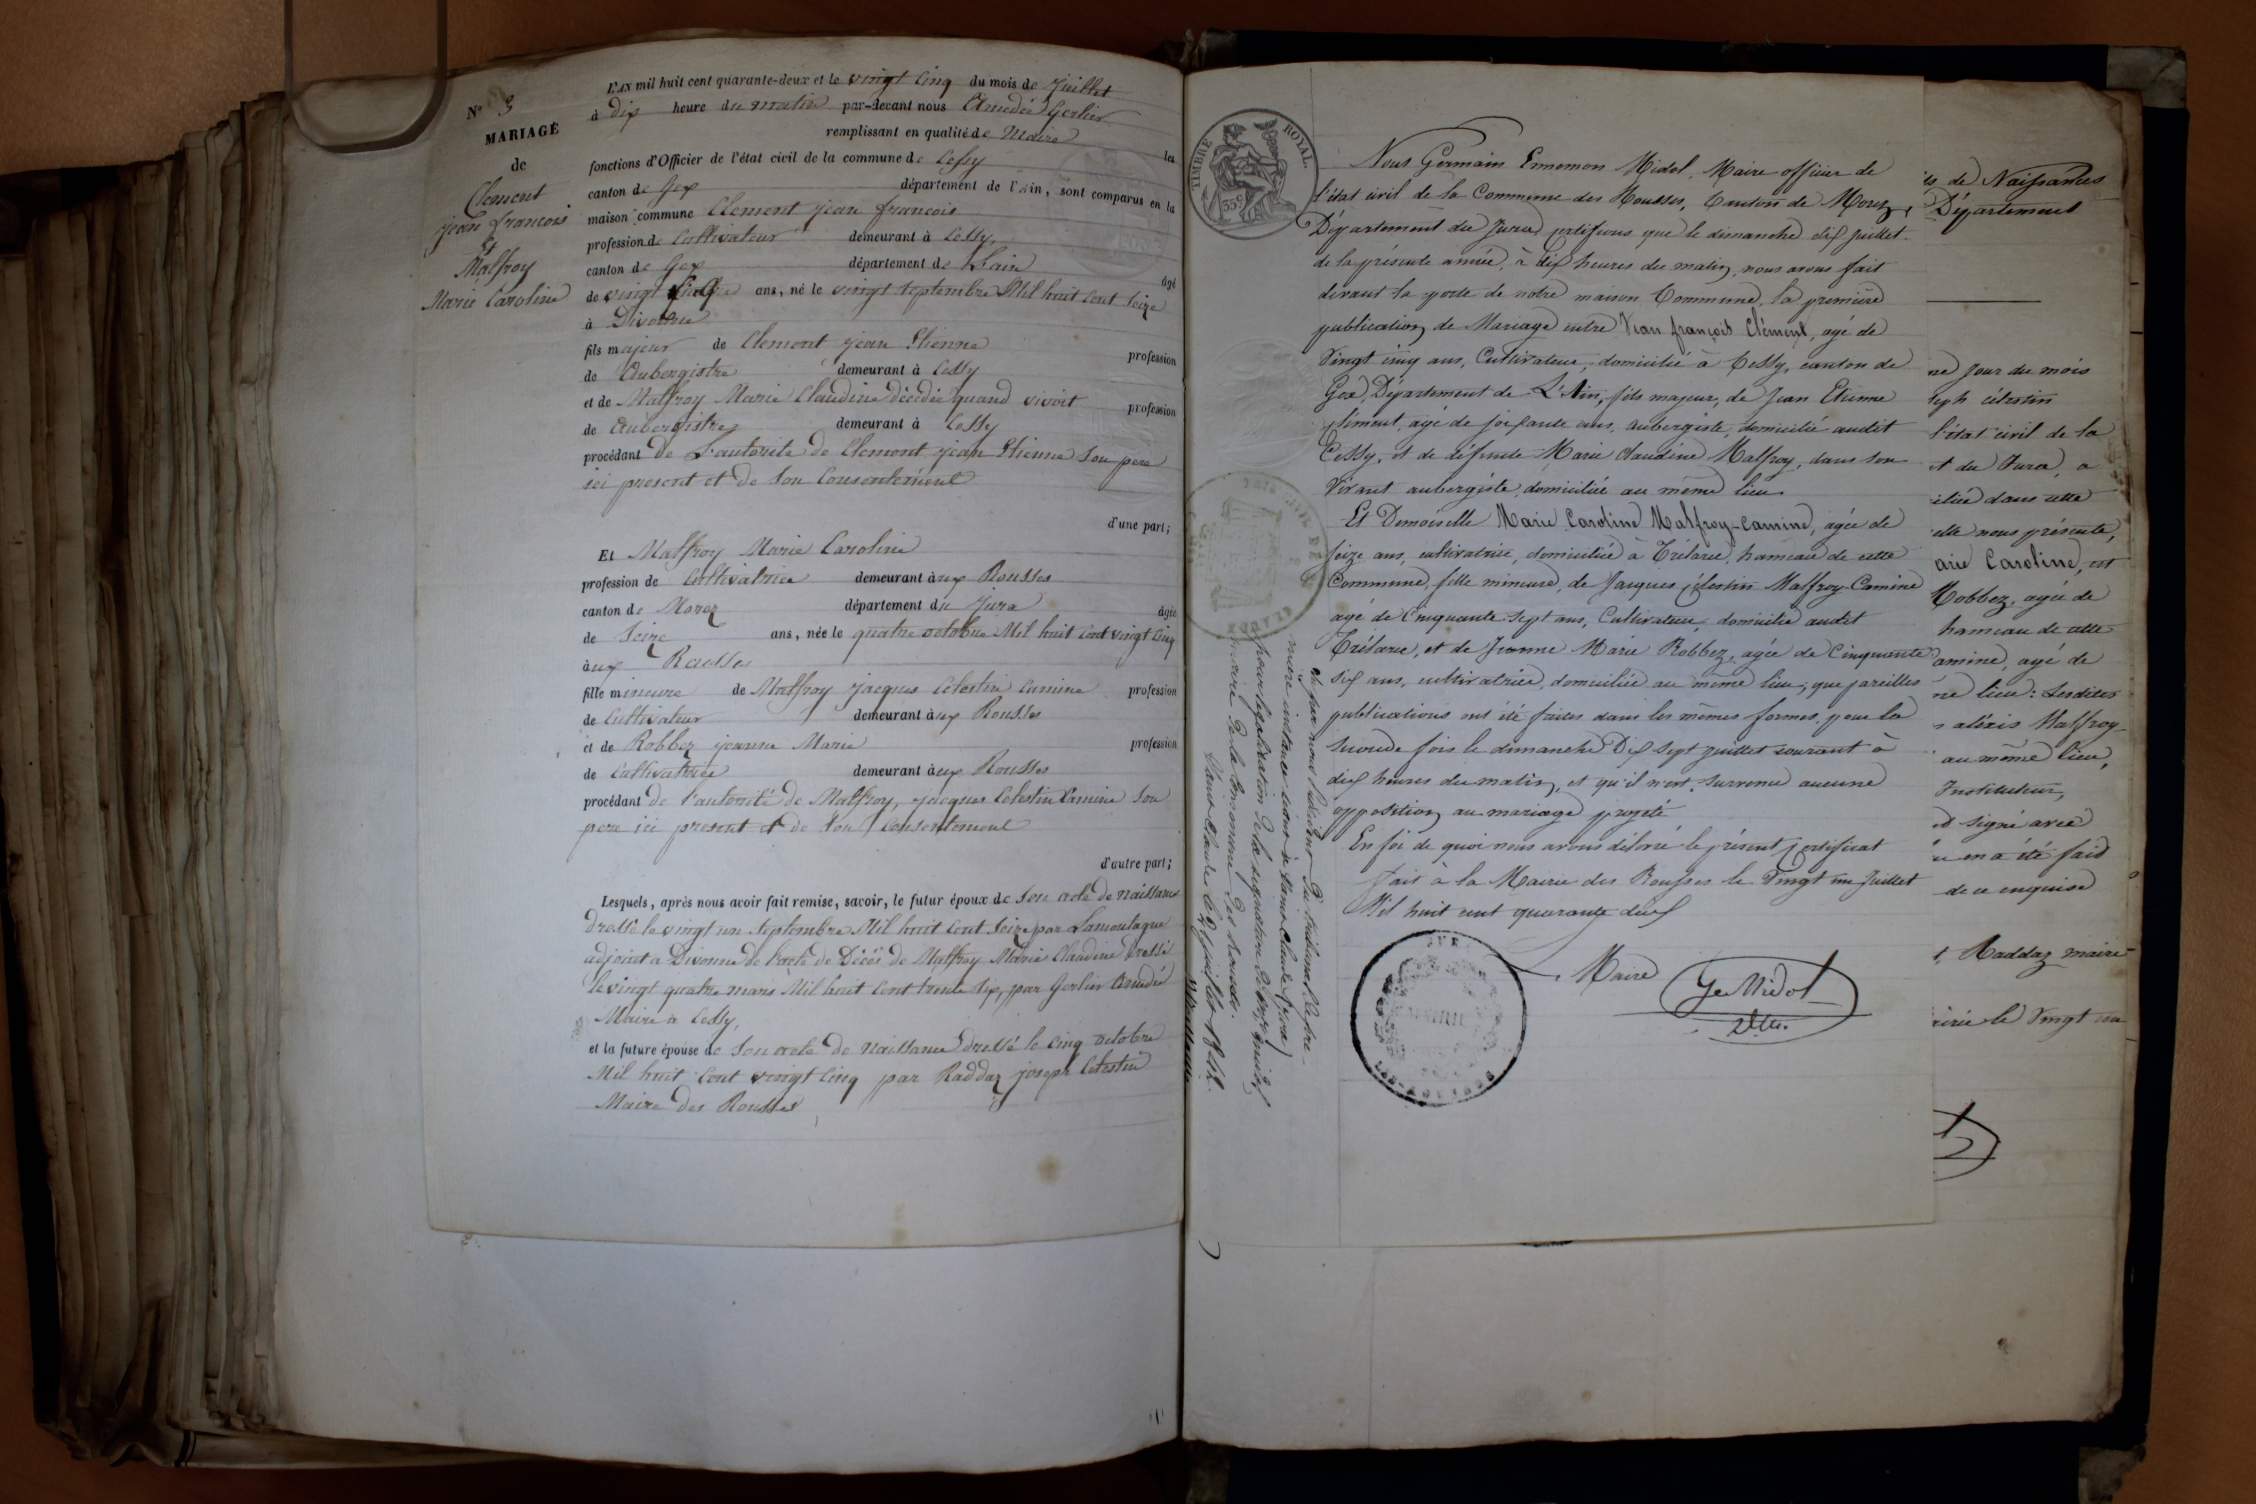 N° 3
MARIAGE
de
Clement
jean françois
et
Malfroy
Marie Caroline
L'AN mil huit cent quarante-deux et le vingt Cinq du mois de juillet
à dix heure du matin par-devant nous Amedé Gerlier
remplissant en qualité de Maire les
fonctions d'Officier de l'état civil de la commune de Cessy
canton de Gex département de l'Ain, sont comparus en la
maison commune Clement jean françois
profession de Cultivateur demeurant à Cessy,
canton de Gex département de L'ain âgé
de vingt ans, né le vingt Septembre Mil huit Cent Seize
à Divonne
fils majeur de Clement jean Etienne profession
de Aubergiste demeurant à Cessy
et de Malfroy Marie Claudine décédée quand vivoit profession
de Aubergiste demeurant à Cessy
procédant de L'autorite de Clement jean Etienne Son pere
ici present et de Son Consentement
d'une part;
Et Malfroy Marie Caroline
profession de Cultivatrice demeurant àux Rousses
canton de Morez département du Jura âgée
de Seize ans, née le quatre octobre Mil huit Cent vingt Cinq
àux Rousses
fille mineure de Malfroy jacques Celestin Camine profession
de Cultivateur demeurant àux Rousses
et de Robbez jeanne Marie profession
de Cultivatrice demeurant àux Rousses
procédant de l'autorité de Malfroy, jacques Celestin Camine Son
pere ici present et de Son Consentement
d'autre part;
Lesquels, après nous avoir fait remise, savoir, le futur époux de Son acte de naissance
dressé le vingt un Septembre Mil huit Cent Seize par Lamontagne
adjoint a Divonne de l'acte de Décès de Malfroy Marie Claudine Dressé
le vingt quatre mars Mil huit Cent trente Six, par Gerlier Amedé
Maire a Cessy,
et la future épouse de Son acte de Naissance dressé le Cinq octobre
Mil huit Cent vingt Cinq par Raddaz joseph Celestin
Maire des Rousses
TIMBRE ROYAL
35c
Nous Germain Ennemon Midol, Maire officier de
l'état civil de la Commune des Rousses, Canton de Morez,
Département du Jura, certifions que le dimanche dix juillet
de la présente année, à dix heures du matin, nous avons fait
devant la porte de notre maison Commune, la première
publication de Mariage entre Jean françois Clément, agé de
Vingt cinq ans, Cultivateur, domicilié à Cessy, canton de
Gex, Département de L'Ain, fils majeur, de Jean Etienne
Clément, agé de soixante ans, aubergiste, domicilié audit
Cessy, et de défunte Marie Claudine Malfroy, dans son
Vivant aubergiste, domiciliée au même lieu
Et Demoiselle Marie Caroline Malfroy-Camine, agée de
seize ans, cultivatrice, domiciliée à Trélarce, hameau de cette
Commune, fille mineure, de Jacques Célestin Malfroy-Camine
agé de Cinquante Sept ans, Cultivateur, domicilié audit
Trélarce, et de Jeanne Marie Robbez, agée de Cinquante
Six ans, cultivatrice, domiciliée au même lieu, que pareilles
publications ont été faites dans les mêmes formes, pour la
seconde fois le dimanche Dix Sept juillet courant à
dix heures du matin, et qu'il n'est survenu aucune
opposition au mariage projeté
En foi de quoi nous avons délivré le présent Certificat
Fait à la Mairie des Rousses le Vingt un Juillet
Mil huit cent quarante deux
Maire
Ge Midol
Vu par nous Président du tribunal de pre-
mière instance séant à Saint-Claude (Jura)
pour légalisation de la signature de Mr. Midol
maire de la Commune des Rousses.
Saint Claude le juillet 1842.
de Naissances
Département
jour du mois
célestin
l'état civil de la
du Jura, a
dans cette
nous présente,
Caroline, est
Robbez, agée de
hameau de cette
amine, agé de
lieu: Lesdites
aléxis Malfroy
au même lieu,
Instituteur,
signé avec
en a été fait
de ce enquise
Raddaz maire
le Vingt un